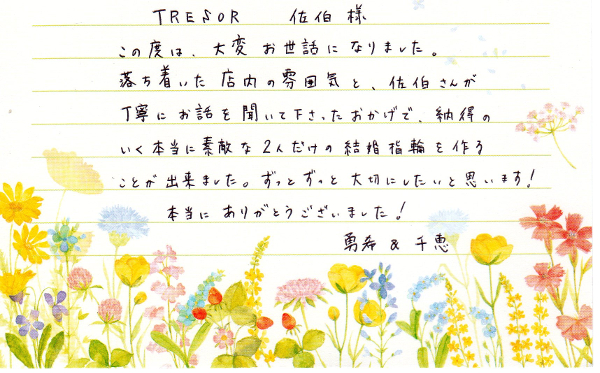 TRESOR 佐伯様
この度は、大変お世話になりました。
落ち着いた店内の雰囲気と、佐伯さんが
丁寧にお話を聞いて下さったおかげで、納得の
いく本当に素敵な2人だけの結婚指輪を作る
ことが出来ました。ずっとずっと大切にしたいと思います!
本当にありがとうございました!
勇希 & 千恵